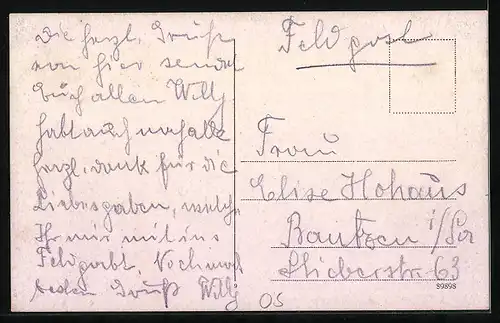 Die herzl. Grüße
von hier sendet
Euch allen Willj
habt auch noch alle
herzl. dank für die
Liebesgaben, welche
Ihr mir mit ins
Feld gabt. Nochmals
besten Gruß Willj
Feldpost
Frau
Elise Hohaus
Bautzen i/Sa
Stieberstr. 63
89898
OS